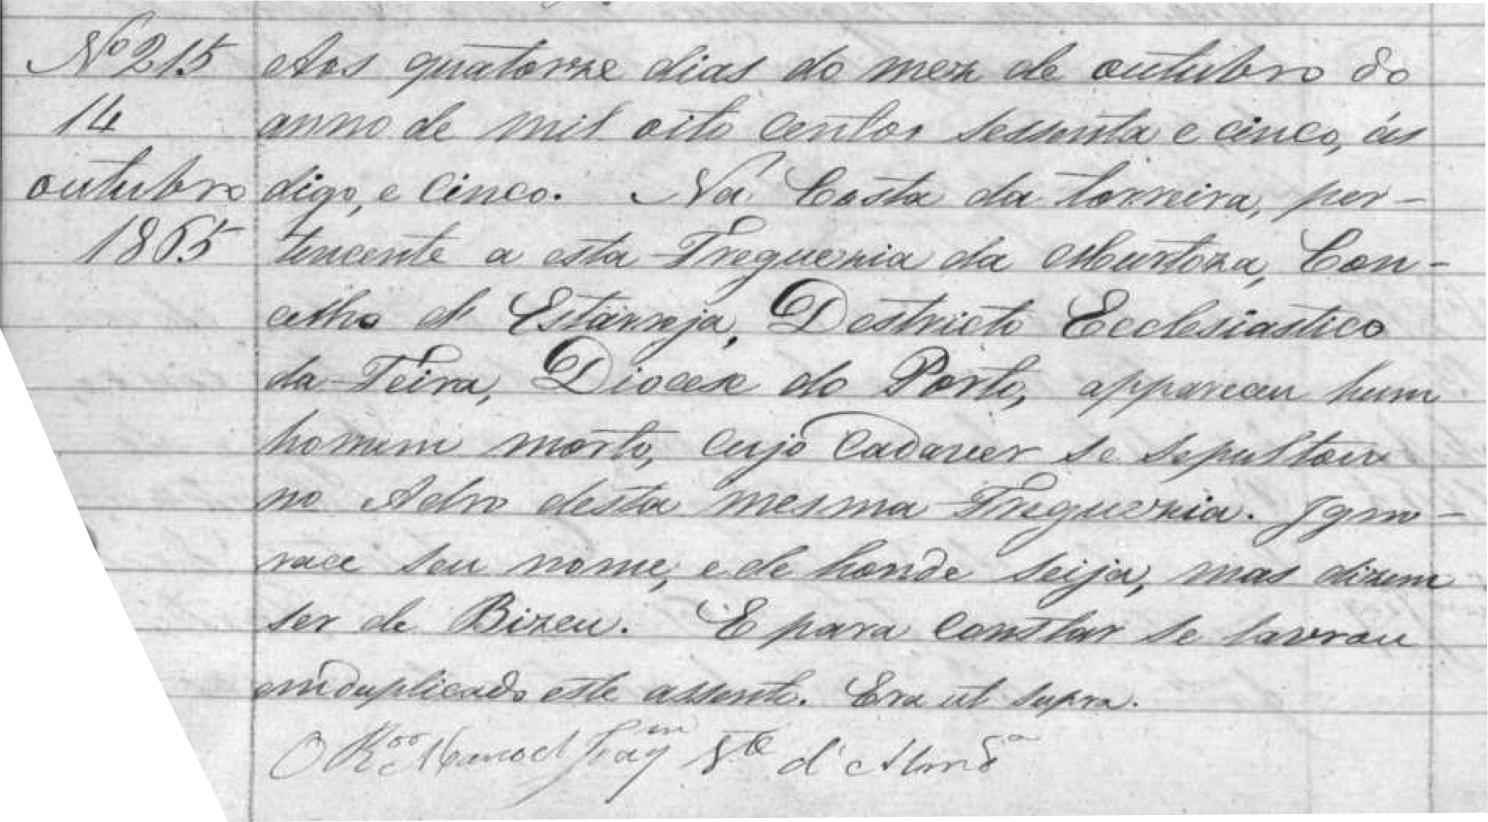 Nº 215
14
outubro
1865
Aos quatorze dias do mez de outubro do
anno de mil oito centos sessenta e cinco, ás
digo, e cinco. Na Costa da torreira, per-
tencente a esta Freguezia da Murtoza, Con-
celho d' Estarreja, Destricto Ecclesiastico
da Feira, Diocese do Porto, appareceu hum
homem morto, cujo cadaver se sepultou
no Adro desta mesma Freguezia. Igno-
race seu nome, e de honde seija, mas dizem
ser de Bizeu. E para constar se lavrou
em duplicado este assento. Era ut supra.
O Manoel d' Almdª